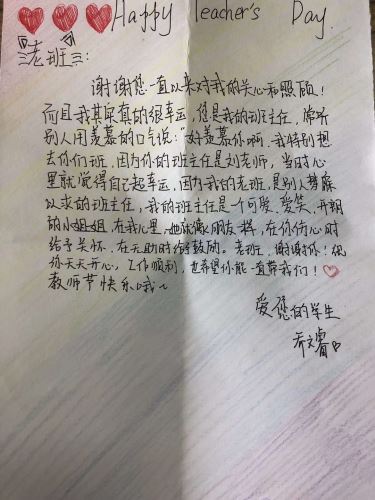 Happy Teacher's Day.
老班:
谢谢您一直以来对我的关心和照顾!
而且我其实真的很幸运,您是我的班主任,常听
别人用羡慕的口气说:"好羡慕你啊,我特别想
去你们班,因为你的班主任是刘老师,当时心
里就觉得自己超幸运,因为我的老班,是别人梦寐
以求的班主任,我的班主任是一个可爱、爱笑、开朗
的小姐姐,在我心里,她就像朋友一样,在你伤心时
给予关怀,在无助时给鼓励。老班,谢谢你!祝
你天天开心,工作顺利,也希望你能一直带我们!
教师节快乐哦~
爱您的学生
乔文睿